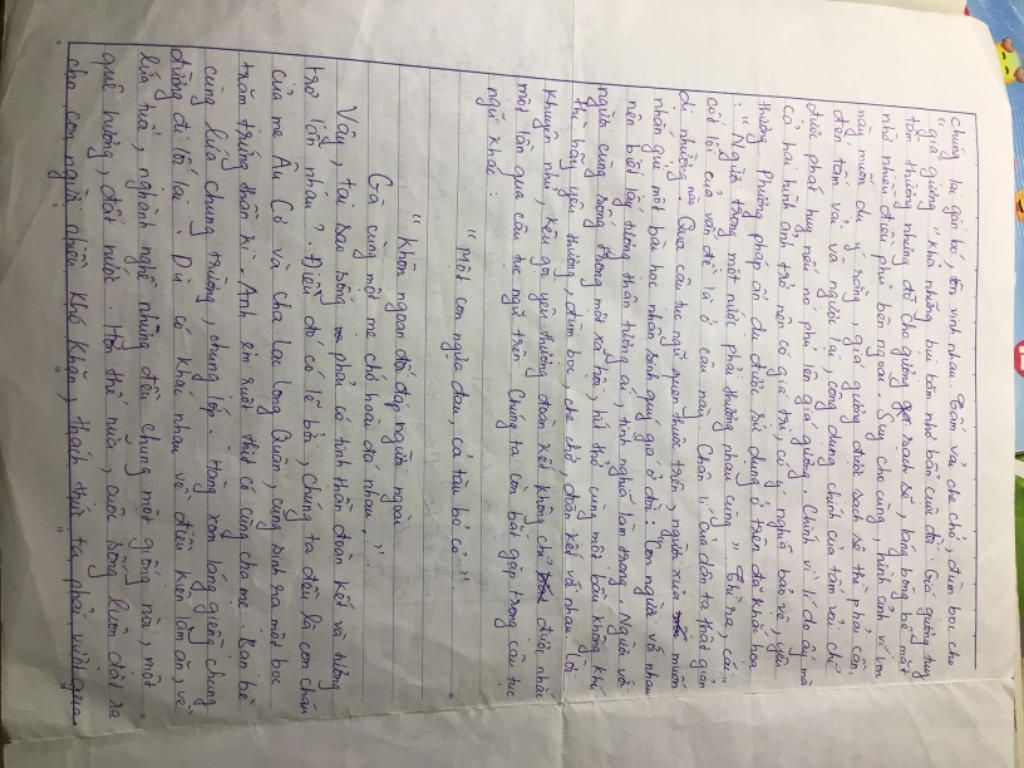 chung lại gắn bó, tôn vinh nhau. Tấm vải che chở, đùm bọc cho
"giá gương" khỏi những bụi bẩn nhơ bẩn cuộc đời. Giá gương dùng
tôn thêm những đồ cho gương sạch sẽ, bóng bẩy bề mặt
như những điều phủ bên ngoài. Suy cho cùng, hình ảnh ví von
này muốn du ý rằng, giá gương được sạch sẽ thì phải cần
đến tấm vải và ngược lại, công dụng chính của tấm vải chỉ
được phát huy nếu nó phủ lên giá gương. Chính vì lí do ấy mà
cả hai hình ảnh trở nên có giá trị, có ý nghĩa bảo vệ, yêu
thương. Phương pháp ẩn dụ được sử dụng ở trên đã khái hoa
: "Người trong một nước phải thương nhau cùng". Thì ra, cái
cốt lõi của vấn đề là ở câu này. Chân lí của dân ta thật giản
dị nhường nào. Qua câu tục ngữ quen thuộc trên, người xưa muốn
nhắn gửi một bài học nhân sinh quý giá ở đời: Con người với nhau
nên biết lấy tương thân tương ái, tình nghĩa làm trọng. Người với
người cùng sống trong một xã hội, hít thở cùng một bầu không khí
thì hãy yêu thương, đùm bọc, che chở, đoàn kết với nhau. Lời
khuyên nhủ, kêu gọi yêu thương đoàn kết không chỉ được nhắc
một lần qua câu tục ngữ trên. Chúng ta còn bắt gặp trong câu tục
ngữ khác:
"Một con ngựa đau, cả tàu bỏ cỏ".
"Khôn ngoan đối đáp người ngoài
Gà cùng một mẹ chớ hoài đá nhau."
Vậy, tại sao sống phải có tinh thần đoàn kết và tương
trợ lẫn nhau? Điều đó có lẽ bởi, chúng ta đều là con cháu
của mẹ Âu Cơ và cha Lạc Long Quân, cùng sinh ra một bọc
trăm trứng thần kì. Anh em ruột thịt có cùng cha mẹ. Bạn bè
cùng lứa chung trường, chung lớp. Hàng xóm láng giềng chung
đường đi lối lại. Dù có khác nhau về điều kiện làm ăn, về
lứa tuổi, nghành nghề nhưng đều chung một giống nòi, một
quê hương, đất nước. Hơn thế nữa, cuộc sống luôn đặt ra
cho con người nhiều khó khăn, thách thức ta phải vượt qua